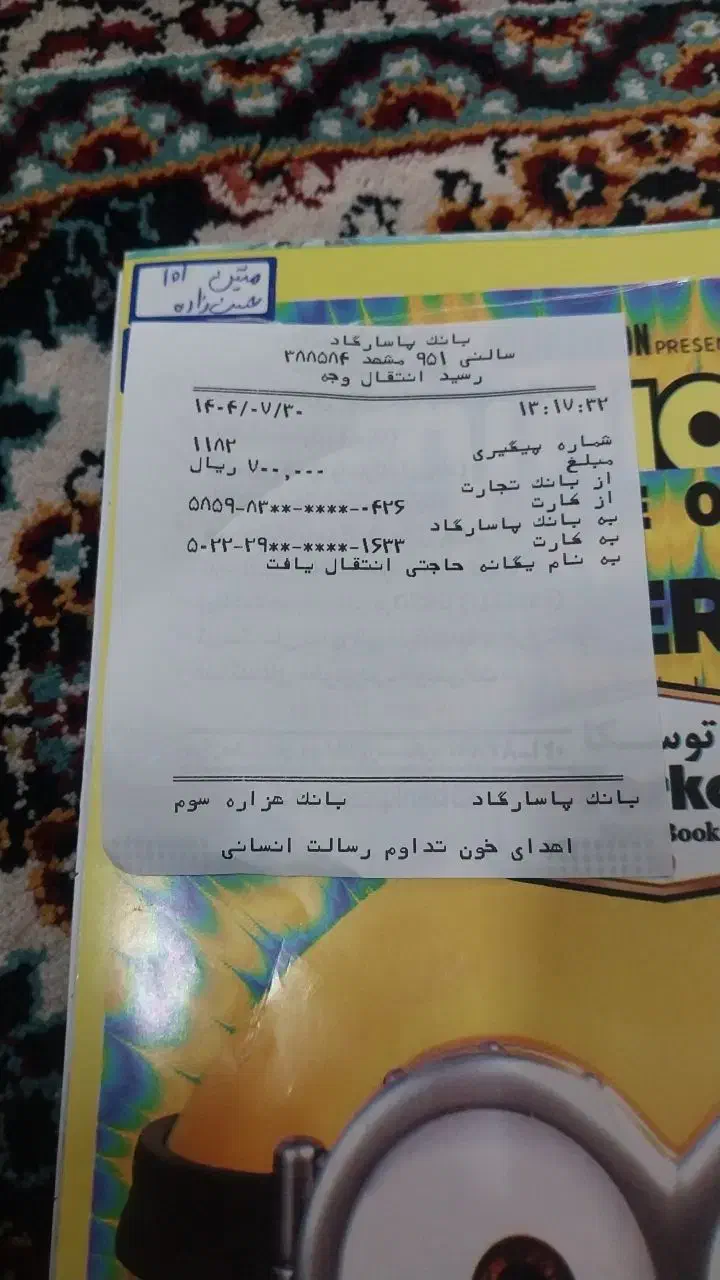 متین ۱۰۱
بانك پاسارگاد
سالنی ۹۵۱ مشهد ۳۸۸۵۸۴
رسید انتقال وجه
۱۴۰۴/۰۷/۳۰ ۱۳:۱۷:۳۲
شماره پیگیری ۱۱۸۲
مبلغ ۷۰۰,۰۰۰ ریال
از بانك تجارت
از كارت ۵۸۵۹-۸۳**-****-۰۴۲۶
به بانك پاسارگاد
به كارت ۵۰۲۲-۲۹**-****-۱۶۳۳
به نام یگانه حاجتی انتقال یافت
بانك پاسارگاد بانك هزاره سوم
اهدای خون تداوم رسالت انسانی
PRESEN
ER
Book